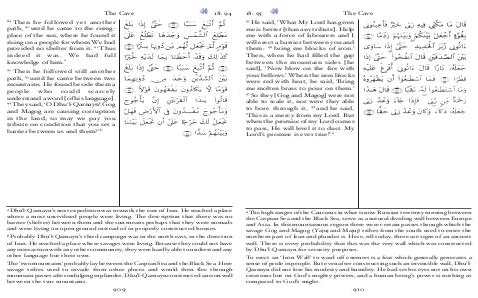 The Cave
18 : 94
⁸⁹ Then he followed yet another
path, ⁹⁰ until he came to the rising-
place of the sun, where he found it
rising on a people for whom We had
provided no shelter from it. ᵃ ⁹¹ Thus
indeed it was. We had full
knowledge of him. ᵇ
⁹² Then he followed still another
path, ⁹³ until he came between two
mountains. He found beside them a
people who could scarcely
understand a word [of his language].
⁹⁴ They said, 'O Dhu'l-Qarnayn! Gog
and Magog are causing corruption
in the land, so may we pay you
tribute on condition that you set a
barrier between us and them?' ᶜ
ثُمَّ أَتْبَعَ سَبَبًا ۝ حَتَّىٰ إِذَا بَلَغَ
مَطْلِعَ الشَّمْسِ وَجَدَهَا تَطْلُعُ عَلَىٰ
قَوْمٍ لَّمْ نَجْعَل لَّهُم مِّن دُونِهَا سِتْرًا ۝
كَذَٰلِكَ وَقَدْ أَحَطْنَا بِمَا لَدَيْهِ خُبْرًا ۝
ثُمَّ أَتْبَعَ سَبَبًا ۝ حَتَّىٰ إِذَا بَلَغَ
بَيْنَ السَّدَّيْنِ وَجَدَ مِن دُونِهِمَا
قَوْمًا لَّا يَكَادُونَ يَفْقَهُونَ قَوْلًا ۝
قَالُوا يَٰذَا الْقَرْنَيْنِ إِنَّ يَأْجُوجَ
وَمَأْجُوجَ مُفْسِدُونَ فِي الْأَرْضِ فَهَلْ
نَجْعَلُ لَكَ خَرْجًا عَلَىٰ أَن تَجْعَلَ بَيْنَنَا
وَبَيْنَهُمْ سَدًّا ۝
ᵃ Dhu'l-Qarnayn's next expedition was towards the east of Iran. He reached a place
where a most uncivilised people were living. The description that there was no
barrier (shelter) between them and the sun means perhaps that they were nomads
and were living on open ground instead of in properly constructed houses.
ᵇ Probably Dhu'l-Qarnayn's third campaign was in the north-east, in the direction
of Iran. He reached a place where savages were living. Because they could not have
any interaction with any other community, they were hardly able to understand any
other language but their own.
ᶜ The 'two mountains' probably lay between the Caspian Sea and the Black Sea. Here
savage tribes used to invade from other places and would then flee through
mountain passes after indulging in plunder. Dhu'l-Qarnayn constructed an iron wall
between the two mountains.
909
18 : 95
The Cave
⁹⁵ He said, 'What My Lord has given
me is better [than any tribute]. Help
me with a force of labourers and I
will erect a barrier between you and
them: ⁹⁶ bring me blocks of iron.'
Then, when he had filled the gap
between the mountain sides [he
said], 'Now blow on the fire with
your bellows.' When the iron blocks
were red with heat, he said, 'Bring
me molten brass to pour on them.'
⁹⁷ So they [Gog and Magog] were not
able to scale it, nor were they able
to bore through it, ⁹⁸ and he said,
'This is a mercy from my Lord. But
when the promise of my Lord comes
to pass, He will level it to dust. My
Lord's promise is ever true!' ᵃ
قَالَ مَا مَكَّنِّي فِيهِ رَبِّي خَيْرٌ فَأَعِينُونِي
بِقُوَّةٍ أَجْعَلْ بَيْنَكُمْ وَبَيْنَهُمْ رَدْمًا ۝
آتُونِي زُبَرَ الْحَدِيدِ حَتَّىٰ إِذَا سَاوَىٰ
بَيْنَ الصَّدَفَيْنِ قَالَ انفُخُوا حَتَّىٰ إِذَا
جَعَلَهُ نَارًا قَالَ آتُونِي أُفْرِغْ عَلَيْهِ
قِطْرًا ۝ فَمَا اسْطَاعُوا أَن يَظْهَرُوهُ
وَمَا اسْتَطَاعُوا لَهُ نَقْبًا ۝ قَالَ هَٰذَا
رَحْمَةٌ مِّن رَّبِّي فَإِذَا جَاءَ وَعْدُ رَبِّي
جَعَلَهُ دَكَّاءَ وَكَانَ وَعْدُ رَبِّي حَقًّا ۝
ᵃ The high ranges of the Caucasus in what is now Russian territory running between
the Caspian Sea and the Black Sea, serve as a natural dividing wall between Europe
and Asia. In this mountainous region there were certain passes through which the
savage Gog and Magog (Yajuj and Majuj) tribes from the south used to enter the
northern part of Iran and plunder it. Here, till today, there are signs of an ancient
wall. There is every probability that this was the very wall which was constructed
by Dhu'l-Qarnayn for security purposes.
To erect an 'Iron Wall' to ward off enemies is a feat which generally generates a
sense of pride in people. But even after constructing such an invincible wall, Dhu'l-
Qarnayn did not lose his modesty and humility. He had set his eyes not on his own
creations but on God's mighty powers, and a human being's power is nothing as
compared to God's might.
910